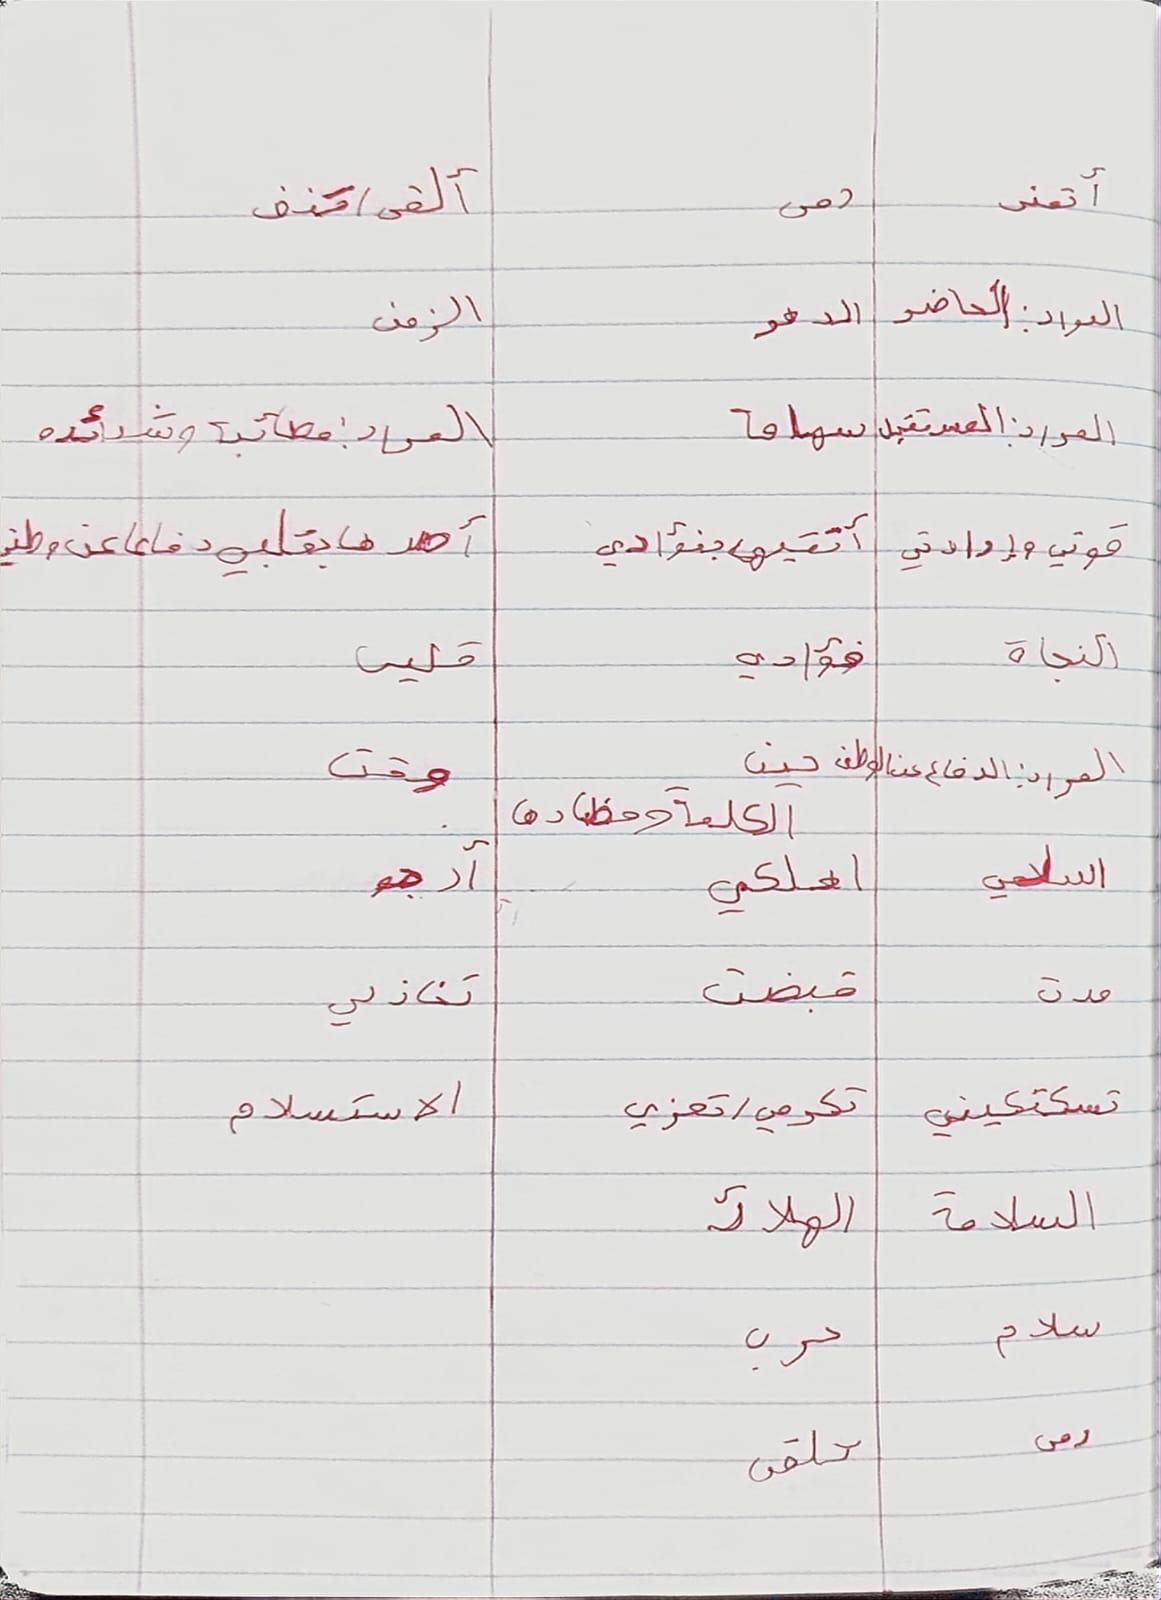 أتمنى رمى ألقى / قذف
المراد: الحاضر الدهر الزمن
المراد: المستقبل سهامه المراد: مصائبه وشدائده
قوتي وإرادتي أتقيها بفؤادي أصدها بقلبي دفاعا عن وطني
النجاة فؤادي قلبي
المراد: الدفاع عن الوطن حين وقت
الكلمة ومضادها
اسلمي اهلكي أرجو
مدت قبضت تخاذلي
تستكيني تكرمي / تعزي الاستسلام
السلامة الهلاك
سلام حرب
رمى تلقى